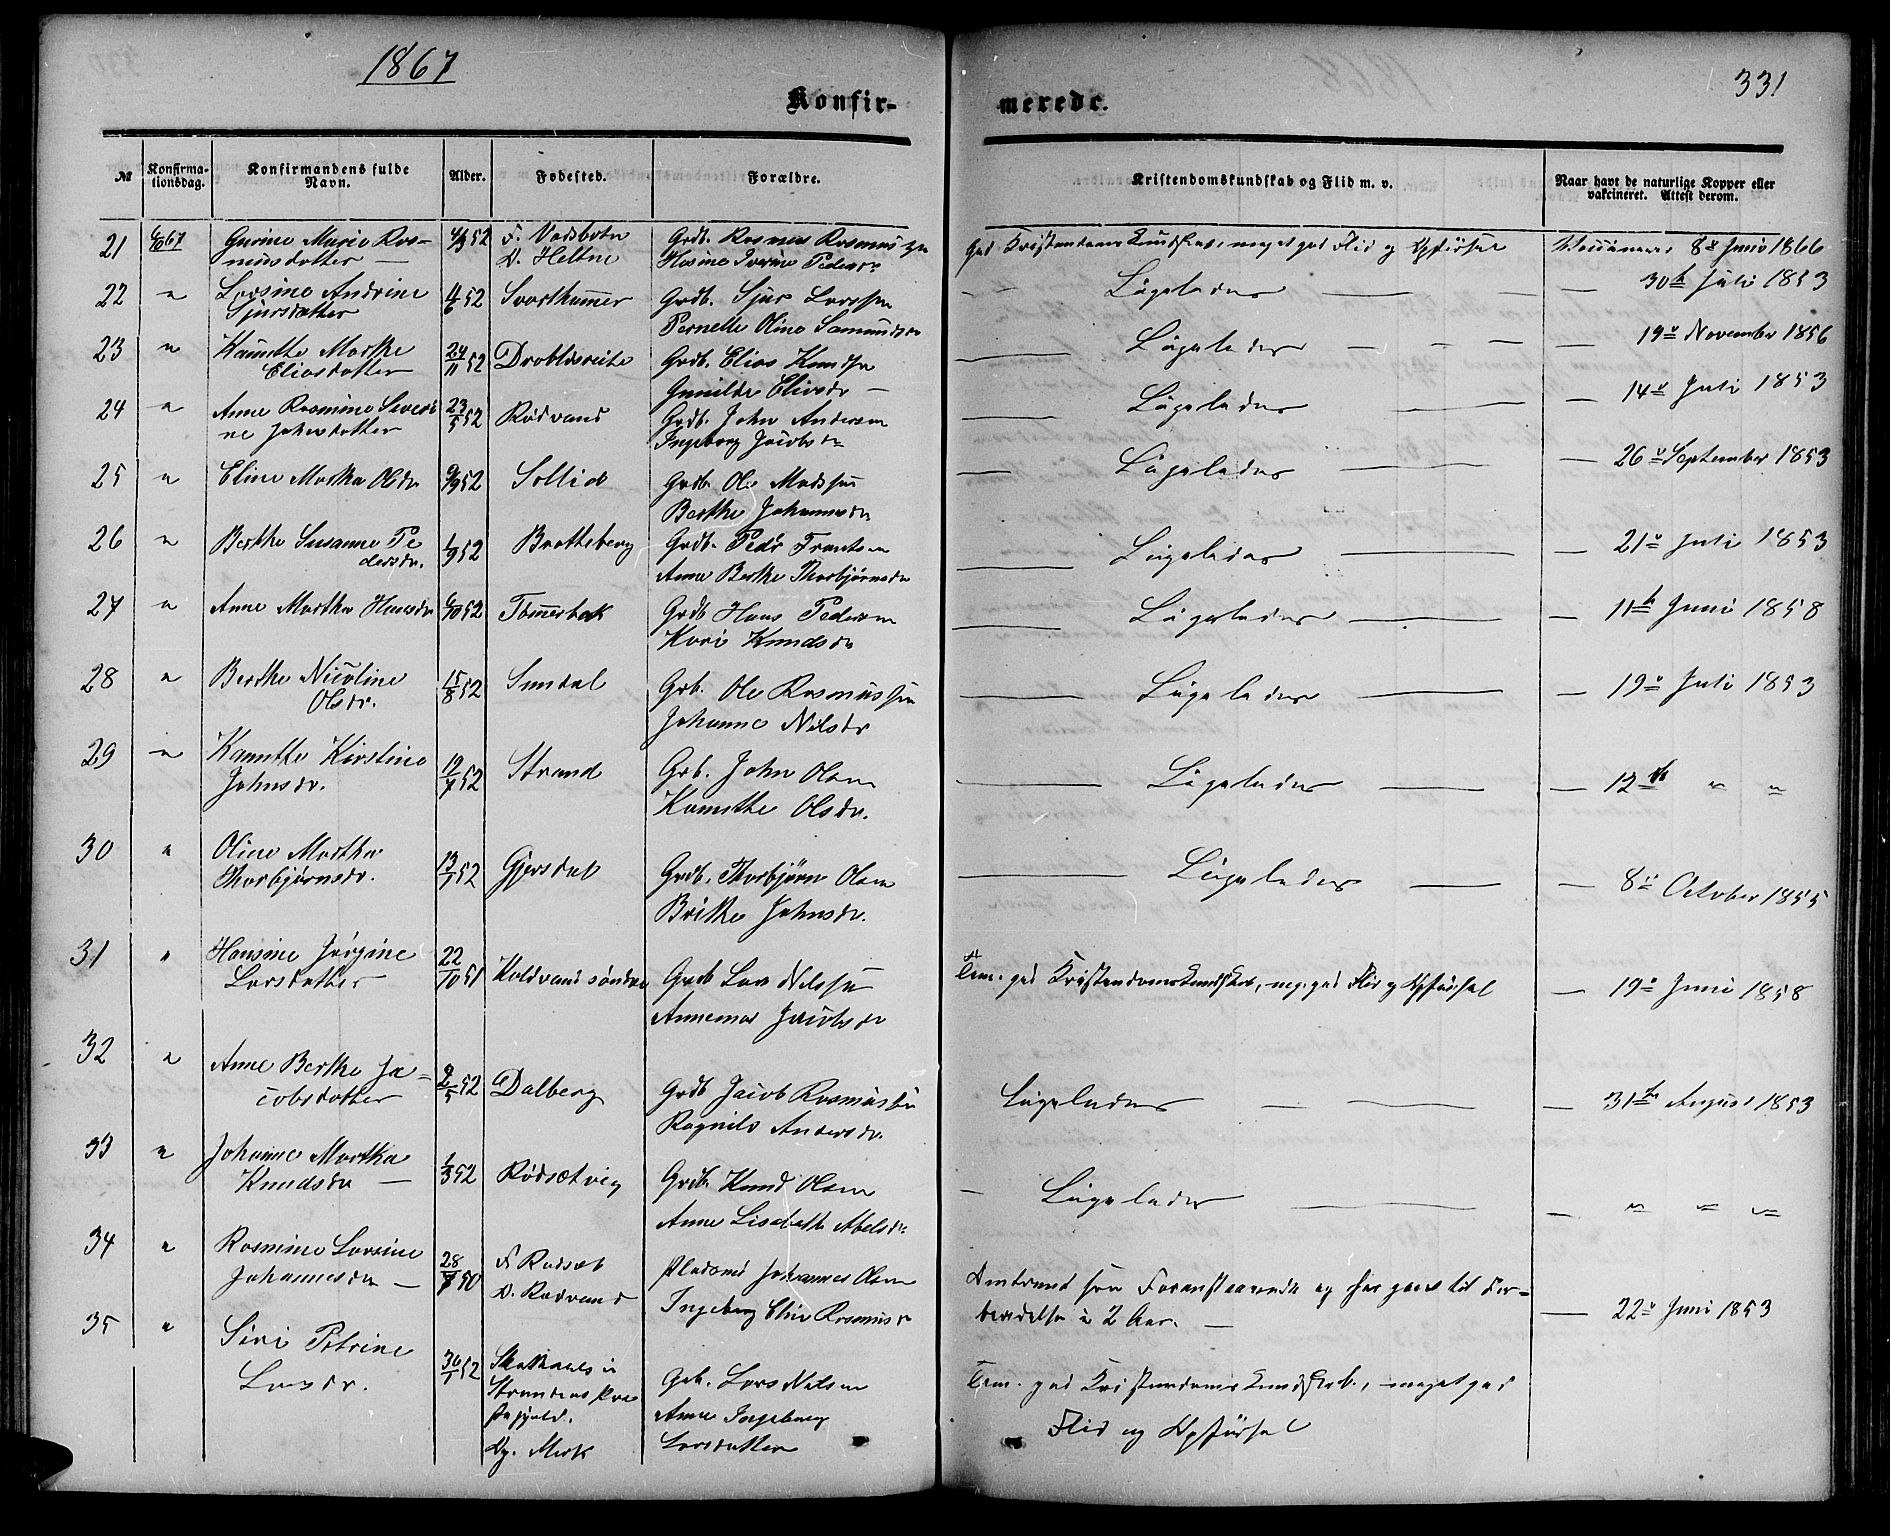 1867
331
Konfir-
merede.
№
Konfirma-
tionsdag.
Konfirmandens fulde
Navn.
Alder.
Fødested.
Forældre.
Kristendomskundskab og Flid m. v.
Naar havt de naturlige Kopper eller
vakcineret. Attest derom.
21 6/10 67 Gurine Marie Ras- 4/3 52 F. Vadsbotn Grdb. Rasmus Rasmussen God Kristendomskundskab, meget god Flid og Opførsel Vaccineret 8de Juni 1866
musdatter — D. Heltne Hasine Iverine Pedersdr
22 " Larsine Andrine 4/6 52 Svarthamer Grdb. Sjur Larssen — Ligeledes — — 30te Juli 1853
Sjursdatter Pernelle Oline Samundsdr
23 " Kanutte Marthe 24/11 52 Drabløsreite Grdb. Elias Knudsen — Ligeledes — — 19de November 1856
Eliasdatter Gunilde Eliasdr —
24 " Anne Rasmine Severi 23/5 52 Rødvand Grdb. John Andersen — Ligeledes — — 14de Juli 1853
ne Johnsdatter Ingeborg Jacobsdr
25 " Eline Martha Olsdr 9/9 52 Sollid Grdb. Ole Madsen — Ligeledes — — 26de September 1853
Berthe Johannesdr
26 " Berthe Susanne Pe 1/9 52 Brotteberg Grdb. Peder Frantsen — Ligeledes — — 21de Juli 1853
dersdr. Anne Berthe Thorbjørnsdr
27 " Anne Martha Hansdr 6/10 52 Tømerbak Grdb Hans Pedersen — Ligeledes — — 11te Juni 1858
Kari Knudsdr
28 " Berthe Nicoline 15/8 52 Sundal Grb. Ole Rasmussen — Ligeledes — — 19de Juli 1853
Olsdr. Johanne Nilsdr
29 " Kanutte Kirstine 19/7 52 Strand Grb. John Olsen — Ligeledes — — 12te " "
Johnsdr. Kanutthe Olsdr.
30 " Oline Martha 13/7 52 Gjersdal Grdb. Thorbjørn Olsen — Ligeledes — — 8de October 1855
Thorbjørnsdr. Brithe Johnsdr.
31 " Hansine Jørgine 22/10 51 Koldvand søndre Grdb Lars Nilssen Tem. god Kristendomskundskab, meg. god Flid og Opførsel — 19de Juni 1858
Larsdatter Annemar Jacobsdr
32 " Anne Berthe Ja- 2/5 52 Dalberg Grdb Jacob Rasmussen Ligeledes — — 31te August 1853
cobsdatter Ragnild Andersdr.
33 " Johanne Martha 1/3 52 Rødsætvig Grdb. Knud Olsen — Ligeledes — — " " "
Knudsdr — Anne Lisabeth Abelsdr
34 " Rasmine Larsine 28/7 50 F. Rødsæt Pladsmd Johannes Olsen Omtrent som Foranstaaende og har gaaet til For-
Johannesdr — D. Rødvand Ingeborg Eline Rasmusdr beredelse i 2 Aar. — — 22de Juni 1853
35 " Siri Petrine 30/1 52 i Grb. Lars Nilsen Tem. god Kristendomskundskab, meget god
Larsdr. Strandens Præ Anne Ingeborg Flid og Opførsel
stegjeld. Larsdatter